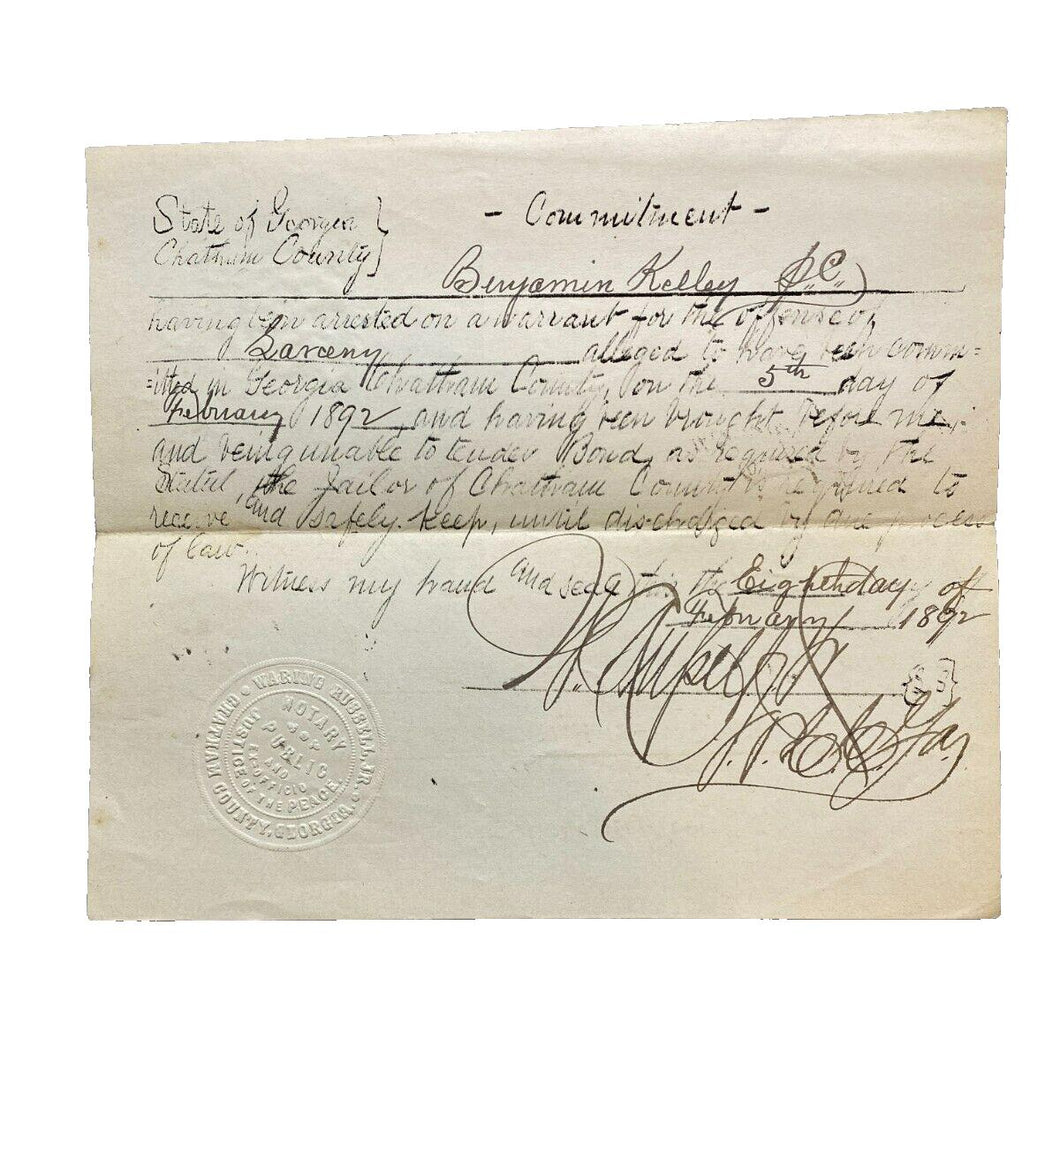 State of Georgia }
Chatham County }
- Commitment -
Benjamin Kelley
having been arrested on a warrant for the offense of
Larceny alleged to have been comm=
=itted in Georgia Chatham County, on the 5th day of
February 1892, and having been brought before me,
and being unable to tender Bond, as required by the
Statut, the Jailor of Chatham County is required to
receive and safely keep, until discharged by due process
of law.
Witness my hand and seal this the Eighth day of
February 1892
WARING RUSSELL, JR.
CHATHAM COUNTY, GEORGIA.
NOTARY
PUBLIC
AND
EX-OFFICIO
JUSTICE OF THE PEACE.